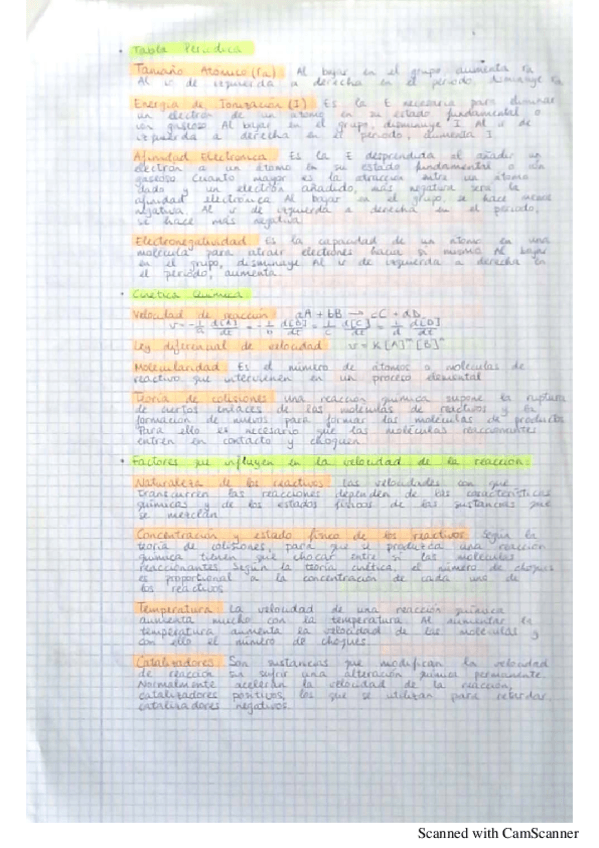 • Tabla Periodica
Tamaño Atomico (ra) Al bajar en el grupo, aumenta ra
Al ir de izquierda a derecha en el periodo disminuye ra
Energia de Ionización (I) Es la E necesaria para eliminar
un electron de un atomo en su estado fundamental o
ion gaseoso Al bajar en el grupo, disminuye I Al ir de
izquierda a derecha en el periodo, aumenta I
Afinidad Electronica Es la E desprendida al añadir un
electron a un átomo en su estado fundamental o ion
gaseoso. Cuanto mayor es la atracción entre un atomo
dado y un electron añadido, más negativa será la
afinidad electronica Al bajar en el grupo, se hace menos
negativa Al ir de izquierda a derecha en el periodo,
se hace más negativa
Electronegatividad Es la capacidad de un atomo en una
molecula para atraer electrones hacia si mismo Al bajar
en el grupo, disminuye Al ir de izquierda a derecha en
el periodo, aumenta
• Cinetica Química
Velocidad de reacción aA + bB → cC + dD
v = - 1/a d[A]/dt = - 1/b d[B]/dt = 1/c d[C]/dt = 1/d d[D]/dt
Ley diferencial de velocidad v = K[A]ᵐ[B]ⁿ
Molecularidad Es el numero de átomos o moleculas de
reactivo que intervienen en un proceso elemental
Teoria de colisiones una reacción quimica supone la ruptura
de ciertos enlaces de las moleculas de reactivos y la
formacion de nuevos para formar las moleculas de productos
Para ello es necesario que las moleculas reaccionantes
entren en contacto y choquen
• Factores que influyen en la velocidad de la reaccion:
Naturaleza de los reactivos Las velocidades con que
transcurren las reacciones dependen de las caracteristicas
químicas y de los estados físicos de las sustancias que
se mezclan
Concentración y estado físico de los reactivos Según la
teoria de colisiones, para que se produzca una reaccion
quimica tienen que chocar entre si las moleculas
reaccionantes Según la teoria cinetica el número de choques
es proporcional a la concentración de cada uno de
los reactivos
Temperatura La velocidad de una reacción química
aumenta mucho con la temperatura Al aumentar la
temperatura aumenta la velocidad de las moleculas y
con ello el número de choques
Catalizadores Son sustancias que modifican la velocidad
de reacción sin sufrir una alteración quimica permanente
Normalmente aceleran la velocidad de la reacción,
catalizadores positivos, los que se utilizan para retardar,
catalizadores negativos.
Scanned with CamScanner